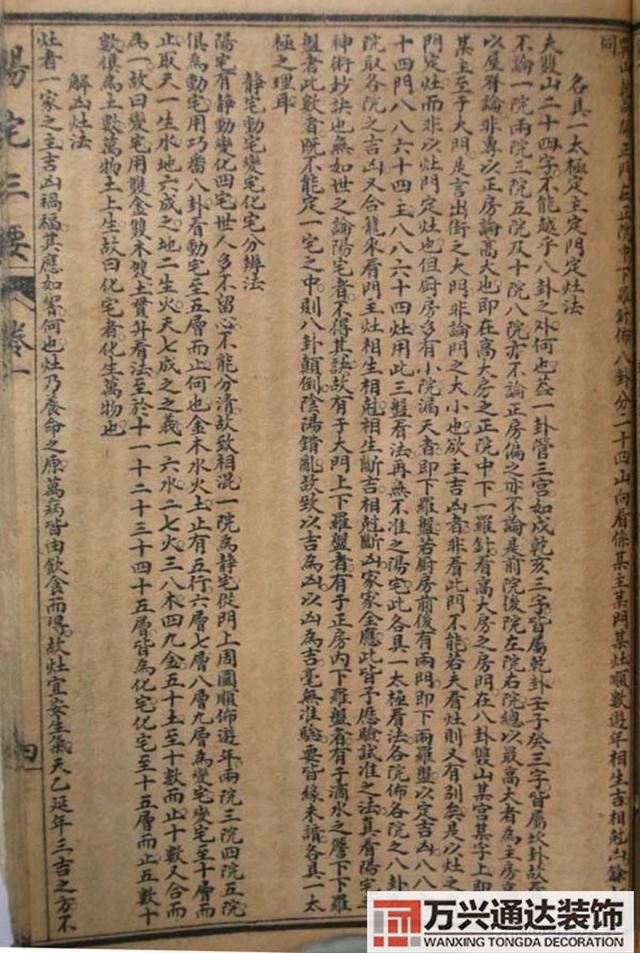 同
各具一太極定主定門定灶法
夫雙山二十四字不能越乎八卦之外何也葢一卦管三宮如戌乾亥三字皆屬乾卦壬子癸三字皆屬坎卦故
不論一院兩院三院五院及十院八院亦不論正房偏之亦不論是前院後院左院右院總以最高大者為主房
以屋脊論非專以正房論高大也即在高大房之正院中下一羅針看高大房之房門在八卦雙山某宮某字上即
某主至于大門是言出街之大門非論門之大小也欲主吉凶者非看此門不能若夫看灶則又有別矣是以灶之
門定灶而非以灶門定灶也但厨房多有小院漏天者即下羅盤若厨房前後有兩門即下兩羅盤以定吉凶八八
十四門八八六十四主八八六十四灶用此三盤看法再無不准之陽宅此各具一太極看法各院佈各院之八卦
院取各院之吉凶又合籠來看門主灶相生相剋相生斷吉相剋斷凶家家全應此皆予應驗試准之法真看陽宅
神術抄訣也無如世之論陽宅者不得其訣故有于大門上下羅盤者有于正房內下羅盤者有于滴水之簷下下羅
盤者此數者既不能定一宅之中則八卦顛倒陰陽錯亂故致以吉為凶以凶為吉毫無准驗要皆緣未讀各具一太
極之理耳
靜宅動宅變宅化宅分辨法
陽宅有靜動變化四宅世人多不留心不能分清故致相混一院為靜宅從門上周圍順佈遊年兩院三院四院五院
俱為動宅用巧番八卦看動宅至五層而止何也金木水火土止有五行六層七層八層九層為變宅變宅至十層而
止取天一生水地六成之地二生火天七成之之義一六水二七火三八木四九金五十土至十數而止十數又合而
為一故曰變宅用雙金雙木雙土貫井看法至於十一十二十三十四十五層皆為化宅化宅至十五層而止五數十
數俱為土數萬物土上生故曰化宅者化生萬物也
解凶灶法
灶者一家之主吉凶禍福其應如響何也灶乃養命之原萬病皆由飲食而得故灶宜安生氣天乙延年三吉之方不
陽宅三要
卷一
四
万兴通达装饰
WANXING TONGDA DECORATION